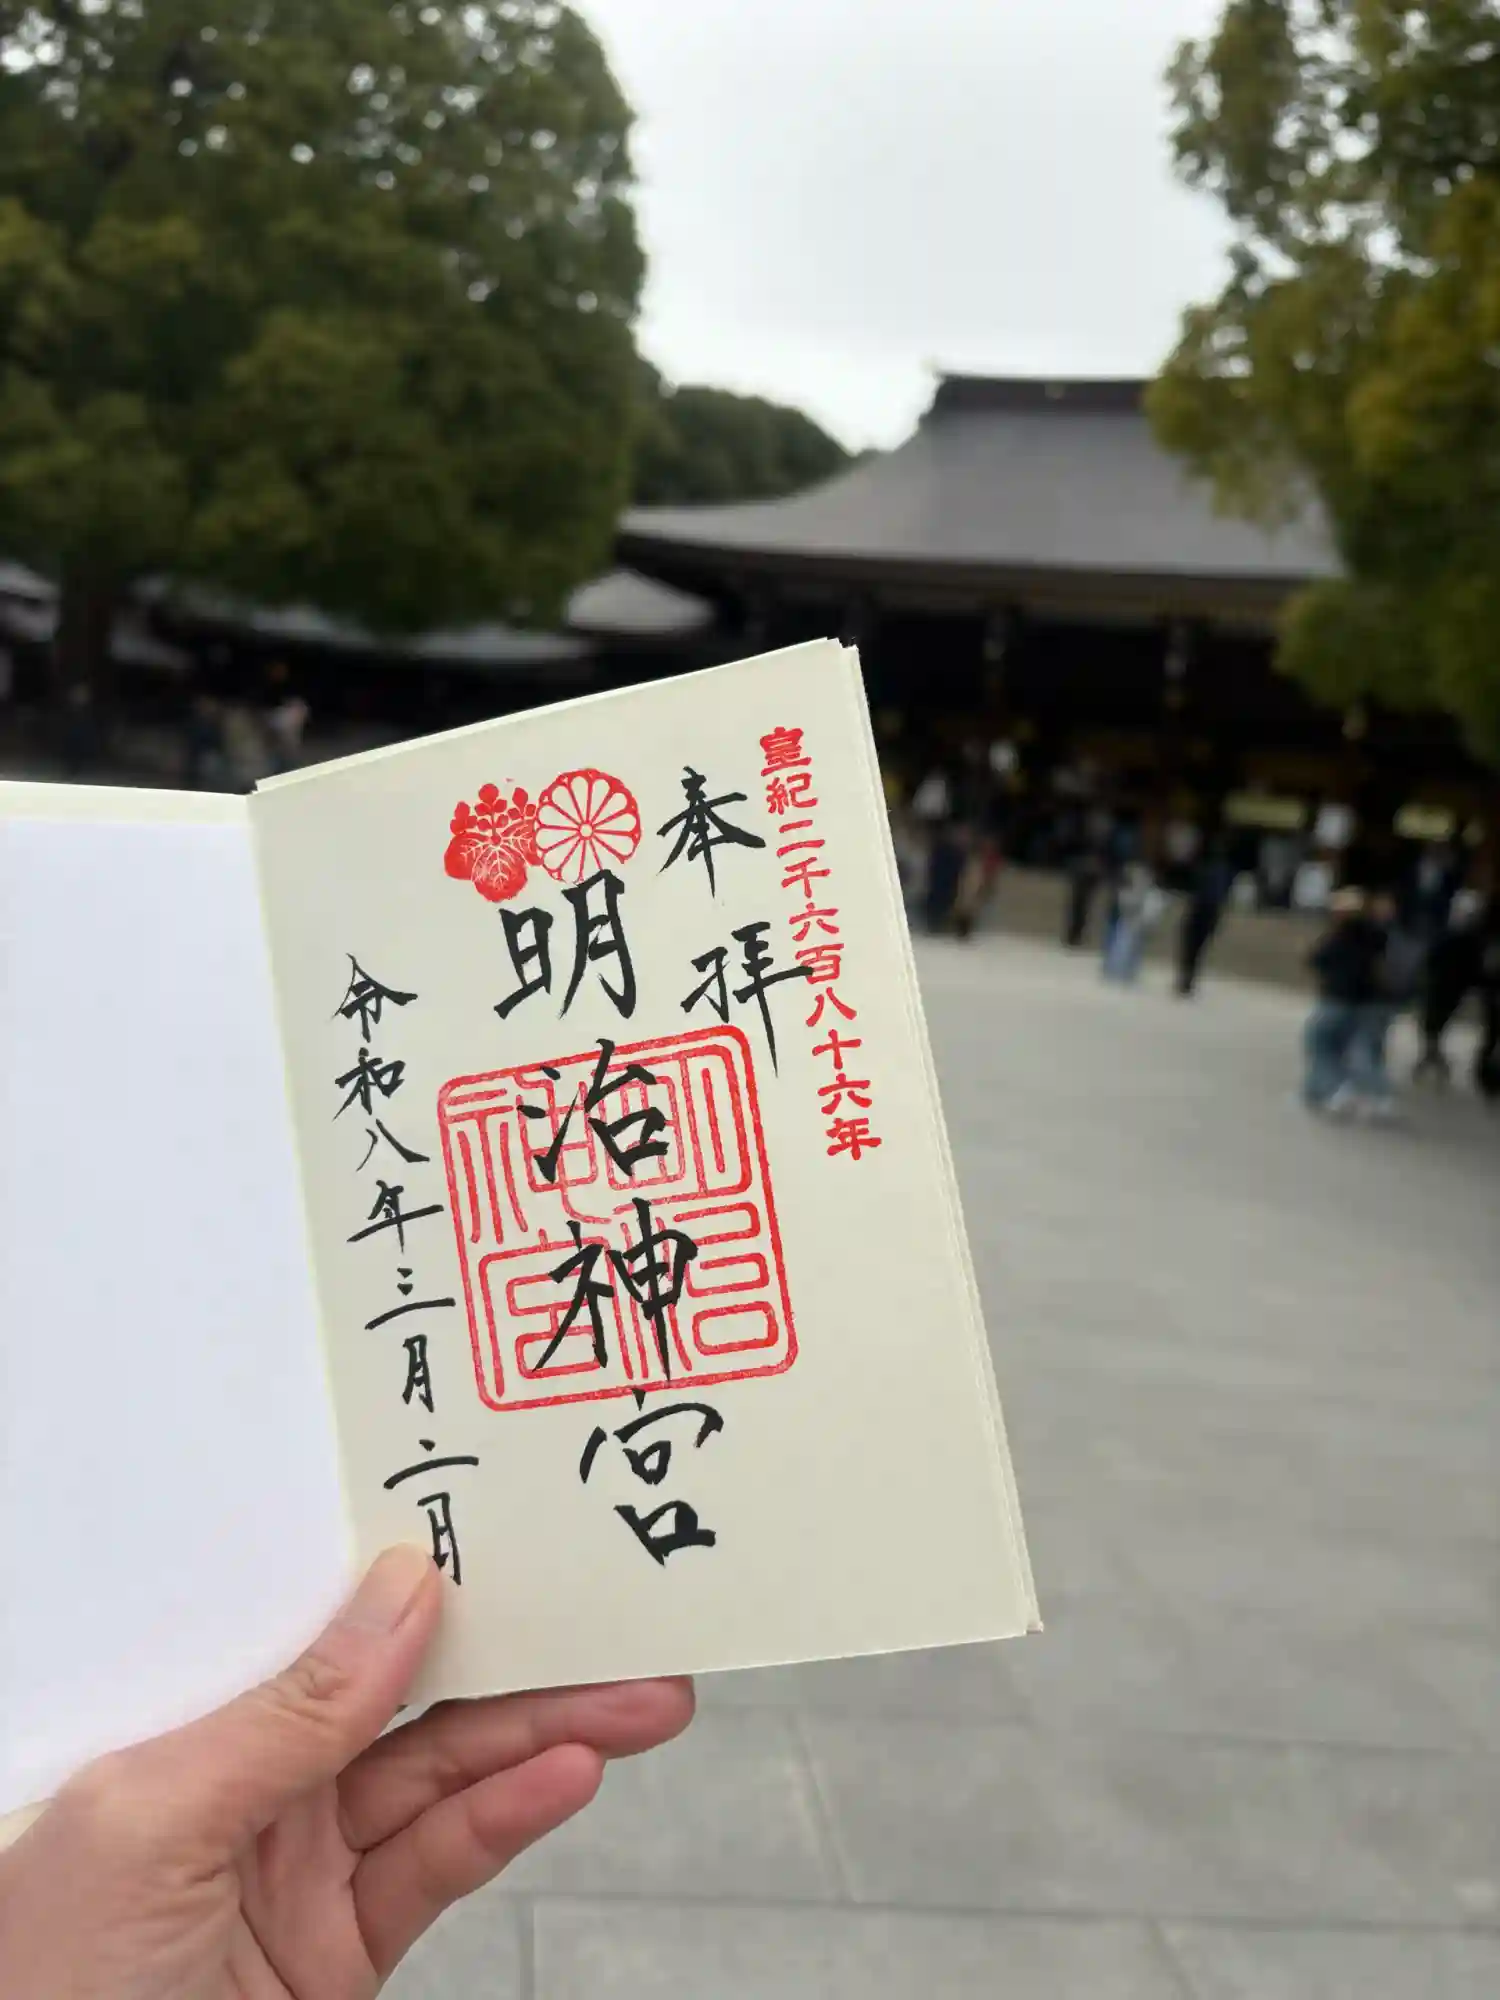 皇紀二千六百八十六年
奉拝
明治神宮
明治神宮
令和八年三月二日